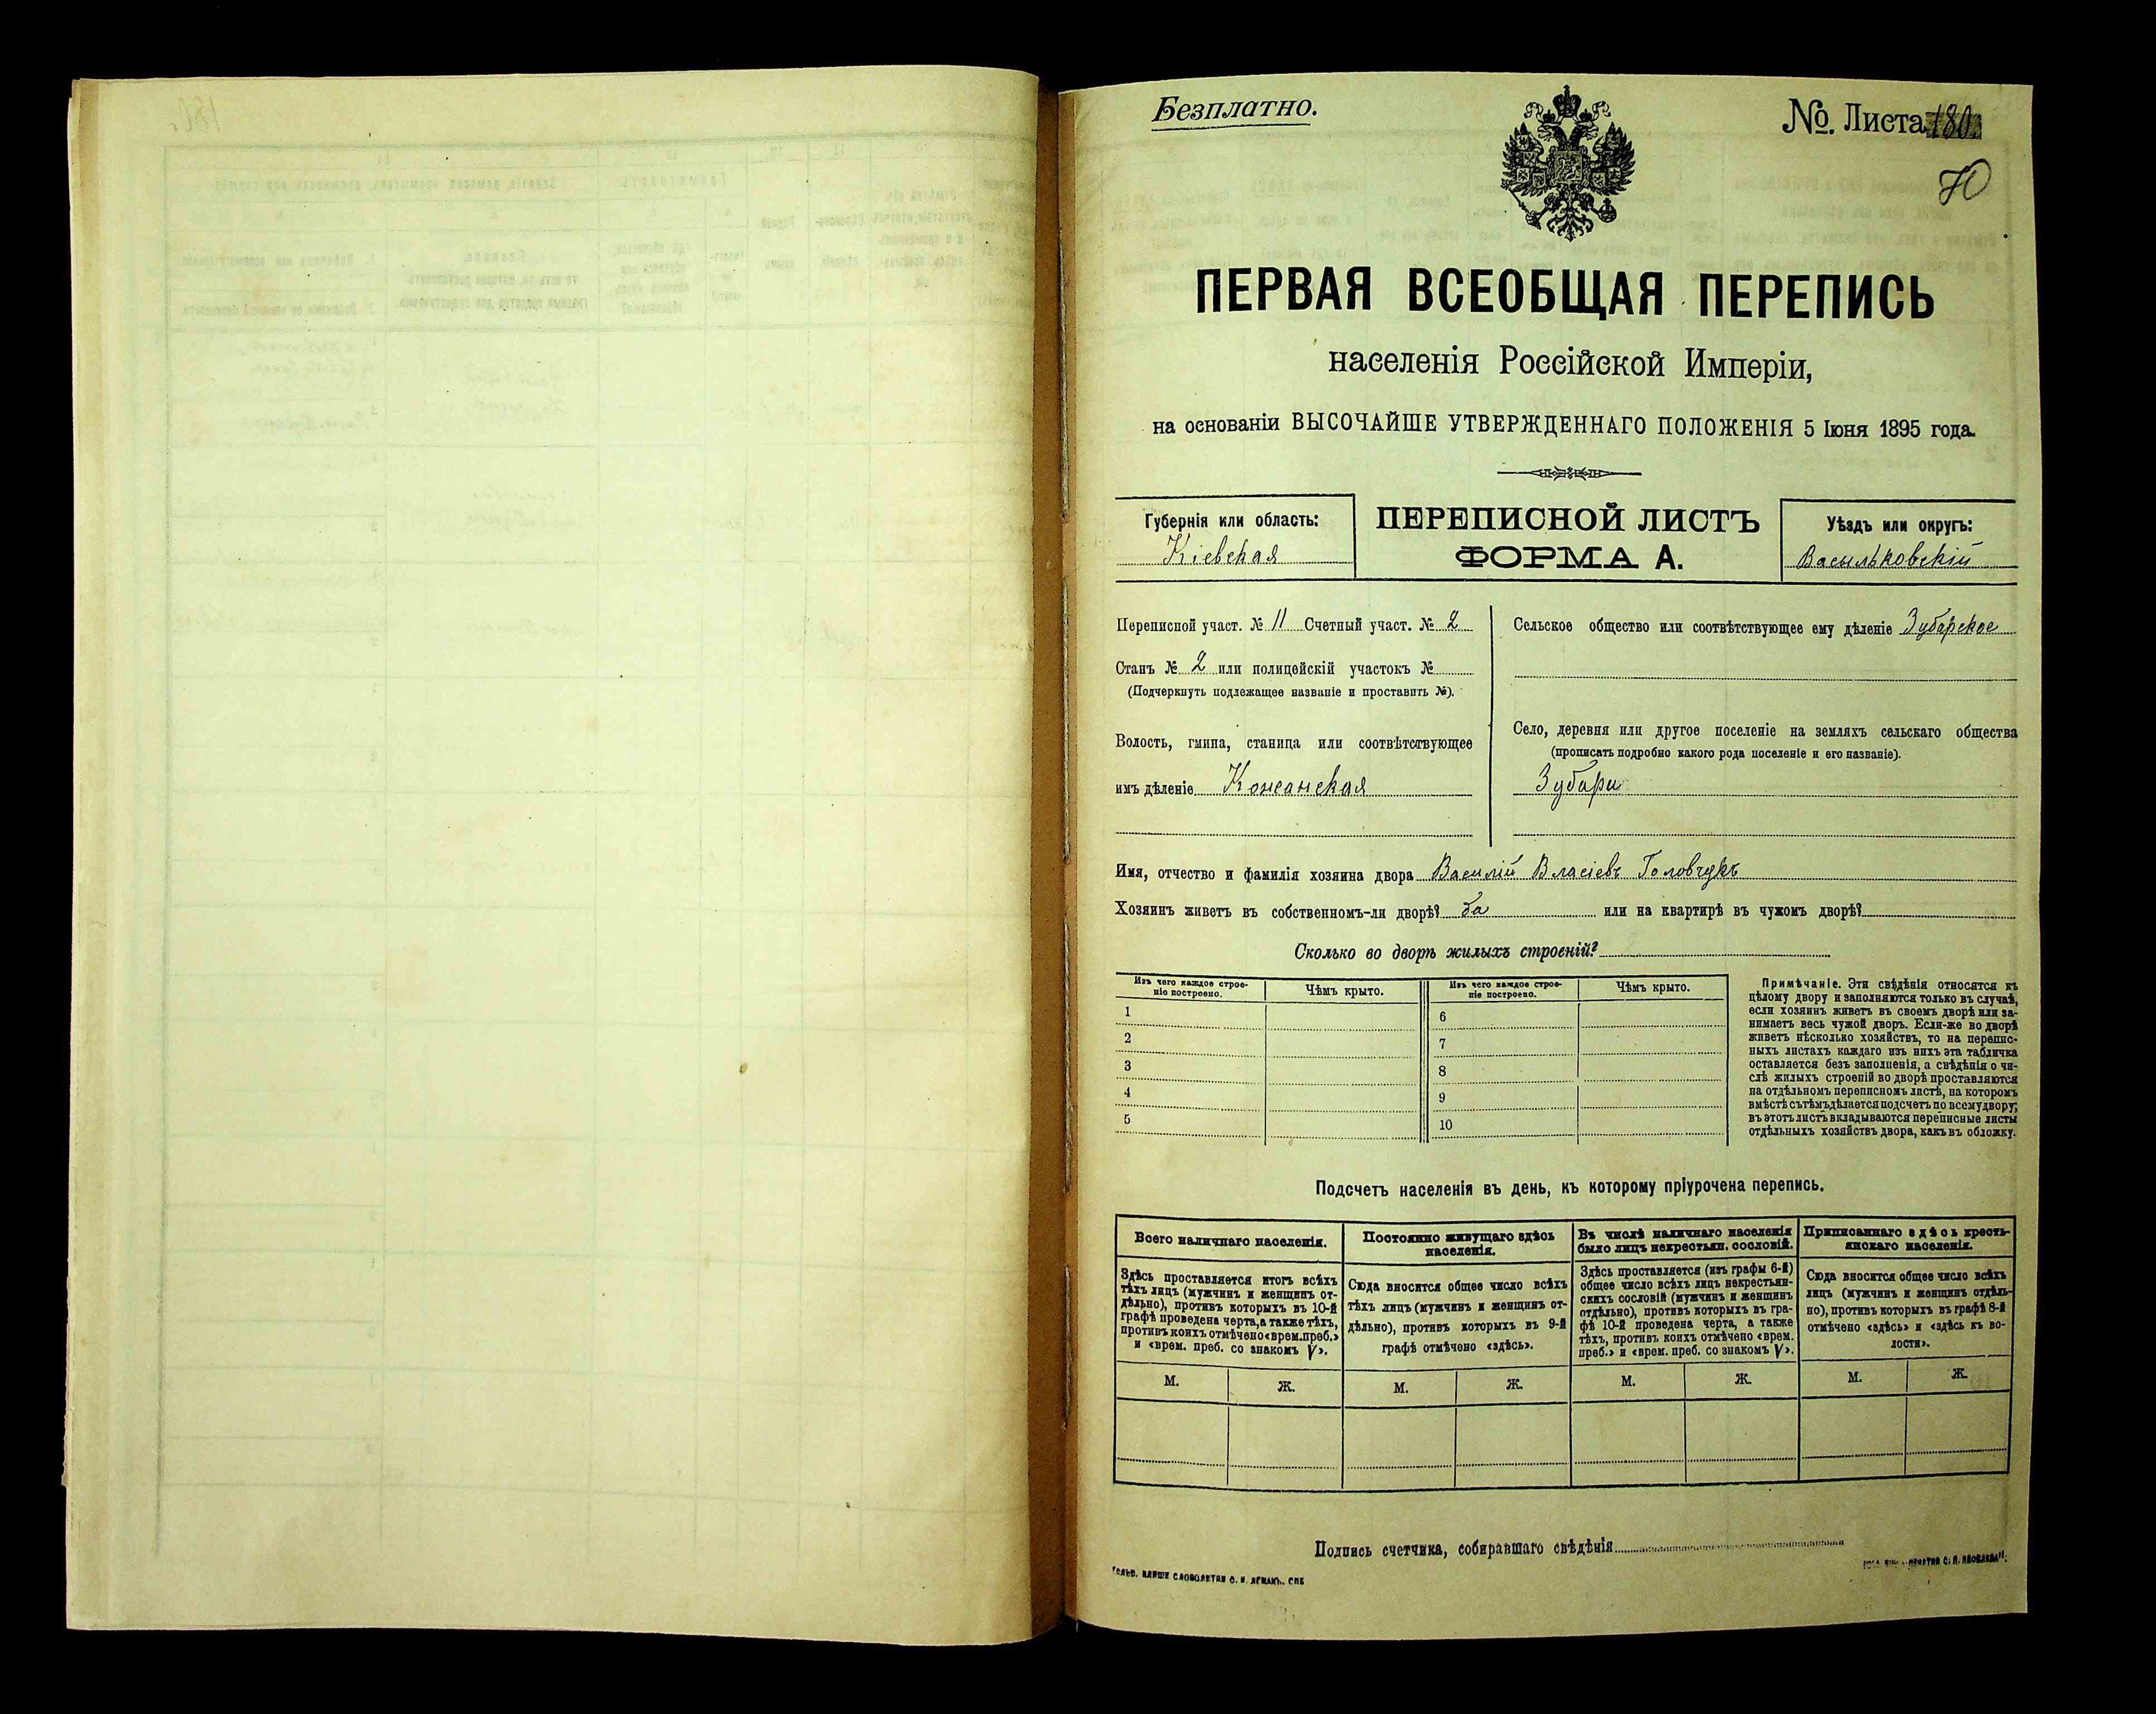 Безплатно.
№. Листа 180.
70
ПЕРВАЯ ВСЕОБЩАЯ ПЕРЕПИСЬ
населенія Россійской Имперіи,
на основаніи ВЫСОЧАЙШЕ УТВЕРЖДЕННАГО ПОЛОЖЕНІЯ 5 Іюня 1895 года.
Губернія или область:
Кіевская
ПЕРЕПИСНОЙ ЛИСТЪ
ФОРМА А.
Уѣздъ или округъ:
Васильковскій
Переписной участ. № 11 Счетный участ. № 2
Станъ № 2 или полицейскій участокъ №
(Подчеркнуть подлежащее названіе и проставить №).
Волость, гмина, станица или соотвѣтствующее
имъ дѣленіе Кожанская
Сельское общество или соотвѣтствующее ему дѣленіе Зубарское
Село, деревня или другое поселеніе на земляхъ сельскаго общества
(прописать подробно какого рода поселеніе и его названіе).
Зубари
Имя, отчество и фамилія хозяина двора Василій Власіевъ Головчукъ
Хозяинъ живетъ въ собственномъ-ли дворѣ? да или на квартирѣ въ чужомъ дворѣ?
Сколько во дворѣ жилыхъ строеній?
Изъ чего каждое строе-
ніе построено.
Чѣмъ крыто.
Изъ чего каждое строе-
ніе построено.
Чѣмъ крыто.
1
2
3
4
5
6
7
8
9
10
Примѣчаніе. Эти свѣдѣнія относятся къ
цѣлому двору и заполняются только въ случаѣ,
если хозяинъ живетъ въ своемъ дворѣ или за-
нимаетъ весь чужой дворъ. Если-же во дворѣ
живетъ нѣсколько хозяйствъ, то на перепис-
ныхъ листахъ каждаго изъ нихъ эта табличка
оставляется безъ заполненія, а свѣдѣнія о чи-
слѣ жилыхъ строеній во дворѣ проставляются
на отдѣльномъ переписномъ листѣ, на которомъ
вмѣстѣ съ тѣмъ дѣлается подсчетъ по всему двору;
въ этотъ листъ вкладываются переписные листы
отдѣльныхъ хозяйствъ двора, какъ въ обложку.
Подсчетъ населенія въ день, къ которому пріурочена перепись.
Всего наличнаго населенія.
Здѣсь проставляется итогъ всѣхъ
тѣхъ лицъ (мужчинъ и женщинъ от-
дѣльно), противъ которыхъ въ 10-й
графѣ проведена черта, а также тѣхъ,
противъ коихъ отмѣчено «врем. преб.»
и «врем. преб. со знакомъ V».
М. Ж.
Постоянно живущаго здѣсь
населенія.
Сюда вносится общее число всѣхъ
тѣхъ лицъ (мужчинъ и женщинъ от-
дѣльно), противъ которыхъ въ 9-й
графѣ отмѣчено «здѣсь».
М. Ж.
Въ числѣ наличнаго населенія
было лицъ некрестьян. сословій.
Здѣсь проставляется (изъ графы 6-й)
общее число всѣхъ лицъ некрестьян-
скихъ сословій (мужчинъ и женщинъ
отдѣльно), противъ которыхъ въ гра-
фѣ 10-й проведена черта, а также
тѣхъ, противъ коихъ отмѣчено «врем.
преб.» и «врем. преб. со знакомъ V».
М. Ж.
Приписаннаго здѣсь кресть-
янскаго населенія.
Сюда вносится общее число всѣхъ
лицъ (мужчинъ и женщинъ отдѣль-
но), противъ которыхъ въ графѣ 8-й
отмѣчено «здѣсь» и «здѣсь къ во-
лости».
М. Ж.
Подпись счетчика, собиравшаго свѣдѣнія